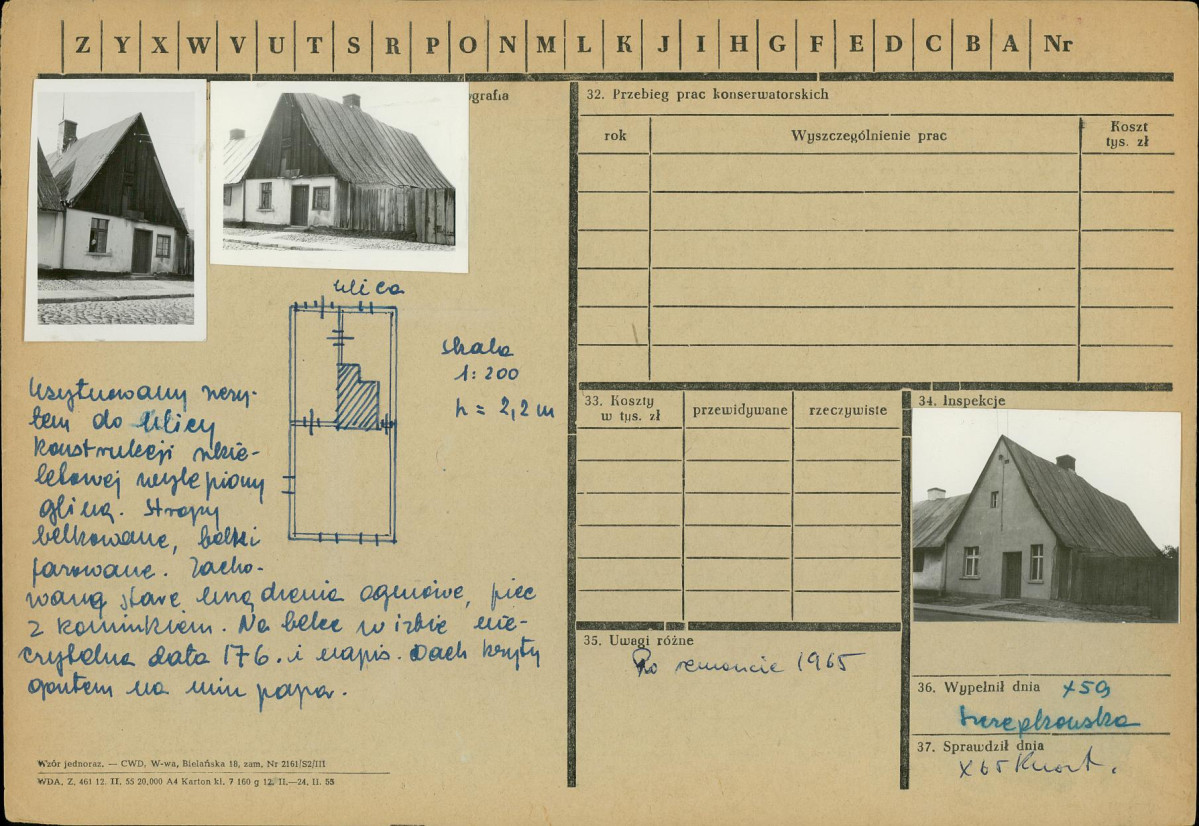 Z Y X W V U T S R P O N M L K J I H G F E D C B A Nr
ografia
ulica
skala
1:200
h = 2,2 m
Usytuowany szczy-
tem do ulicy
konstrukcji szkie-
letowej wylepiony
gliną. Stropy
belkowane, belki
fazowane. Zacho-
wane stare urządzenia ogniowe, piec
z kominkiem. Na belce w izbie nie-
czytelna data 176. i napis. Dach kryty
gontem na nim papa.
Wzór jednoraz. — CWD, W-wa, Bielańska 18, zam. Nr 2161/S2/III
WDA. Z. 461 12. II. 55 20.000 A4 Karton kl. 7 160 g 12. II.—24. II. 55
32. Przebieg prac konserwatorskich
rok
Wyszczególnienie prac
Koszt
tys. zł
33. Koszty
w tys. zł
przewidywane
rzeczywiste
34. Inspekcje
35. Uwagi różne
Po remoncie 1965
36. Wypełnił dnia X 59
37. Sprawdził dnia
X 65